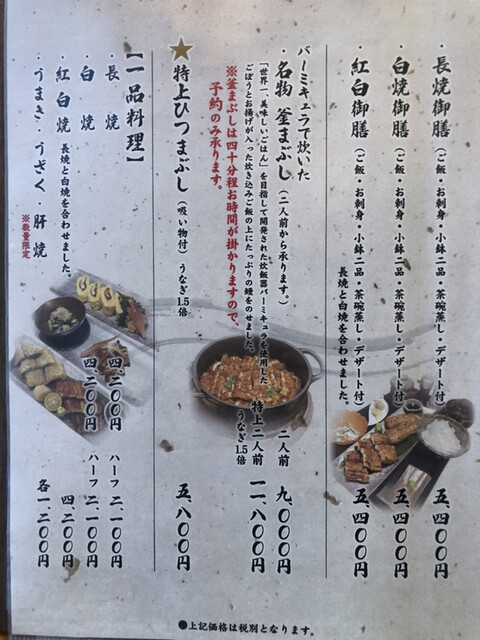 長焼御膳（ご飯・お刺身・小鉢二品・茶碗蒸し・デザート付） 五、四〇〇円
白焼御膳（ご飯・お刺身・小鉢二品・茶碗蒸し・デザート付） 五、四〇〇円
紅白御膳（ご飯・お刺身・小鉢二品・茶碗蒸し・デザート付） 五、四〇〇円
長焼と白焼を合わせました。
バーミキュラで炊いた
・名物 釜まぶし（二人前から承ります。） 二人前 九、〇〇〇円
「世界一、美味しいごはん」を目指して開発された炊飯器バーミキュラを使用した
ごぼうとお揚げが入った炊き込みご飯の上にたっぷりの鰻をのせました。
特上二人前 一一、八〇〇円
うなぎ1.5倍
※釜まぶしは四十分程お時間が掛かりますので、
予約のみ承ります。
★特上ひつまぶし（吸い物付）うなぎ1.5倍 五、八〇〇円
【一品料理】
・長焼 四、二〇〇円 ハーフ 二、一〇〇円
・白焼 四、二〇〇円 ハーフ 二、一〇〇円
・紅白焼 長焼と白焼を合わせました。 四、二〇〇円
・うまき・うざく・肝焼 各一、二〇〇円
※数量限定
●上記価格は税別となります。